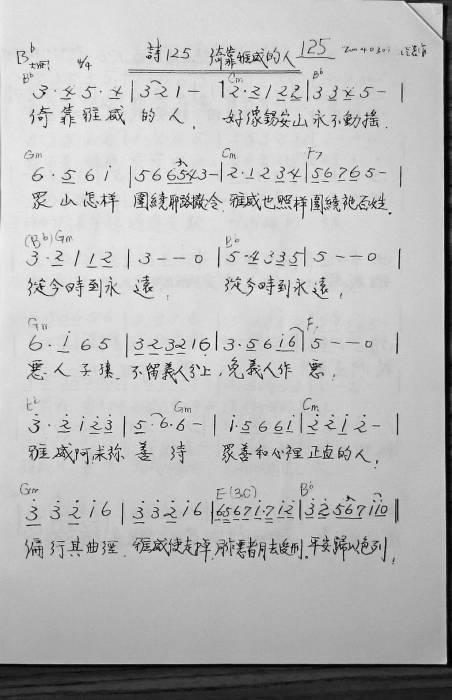 B♭ 大調 4/4 詩125 倚靠雅威的人 125
B♭ Cm B♭
3·4 5·4 |3 2 1 - |2·2 1 2 2 |3 3 4 5 - |
倚靠雅威的人, 好像錫安山永不動搖.
Gm Cm F7
6·5 6 i |5 6 6 5 4 3 - |2·1 2 3 4 |5 6 7 6 5 - |
眾山怎樣 圍繞耶路撒冷, 雅威也照樣圍繞祂百姓.
(B♭) Gm B♭
3·2 1 1 2 |3 - - 0 |5·4 3 3 5 |5 - - 0 |
從今時到永遠, 從今時到永遠,
Gm F
6·i 6 5 |3 2 3 2 1 6 |3·5 6 i 6 |5 - - 0 |
惡人子孫 不留義人分上, 免義人作惡,
E♭ Gm Cm
3·2 i 2 3 |5·6·6 - |i·5 6 6 i |2 2 i 2 - |
雅威阿求祢善待 眾善和心裡正直的人,
Gm E(3C) B♭
3 3 2 i 6 |3 3 2 i 6 |6 5 6 7 i·7 i 2 |3 2 5 6 7 i i 0 ‖
偏行其曲徑, 雅威使走掉, 作惡者同去受刑, 平安歸以色列,